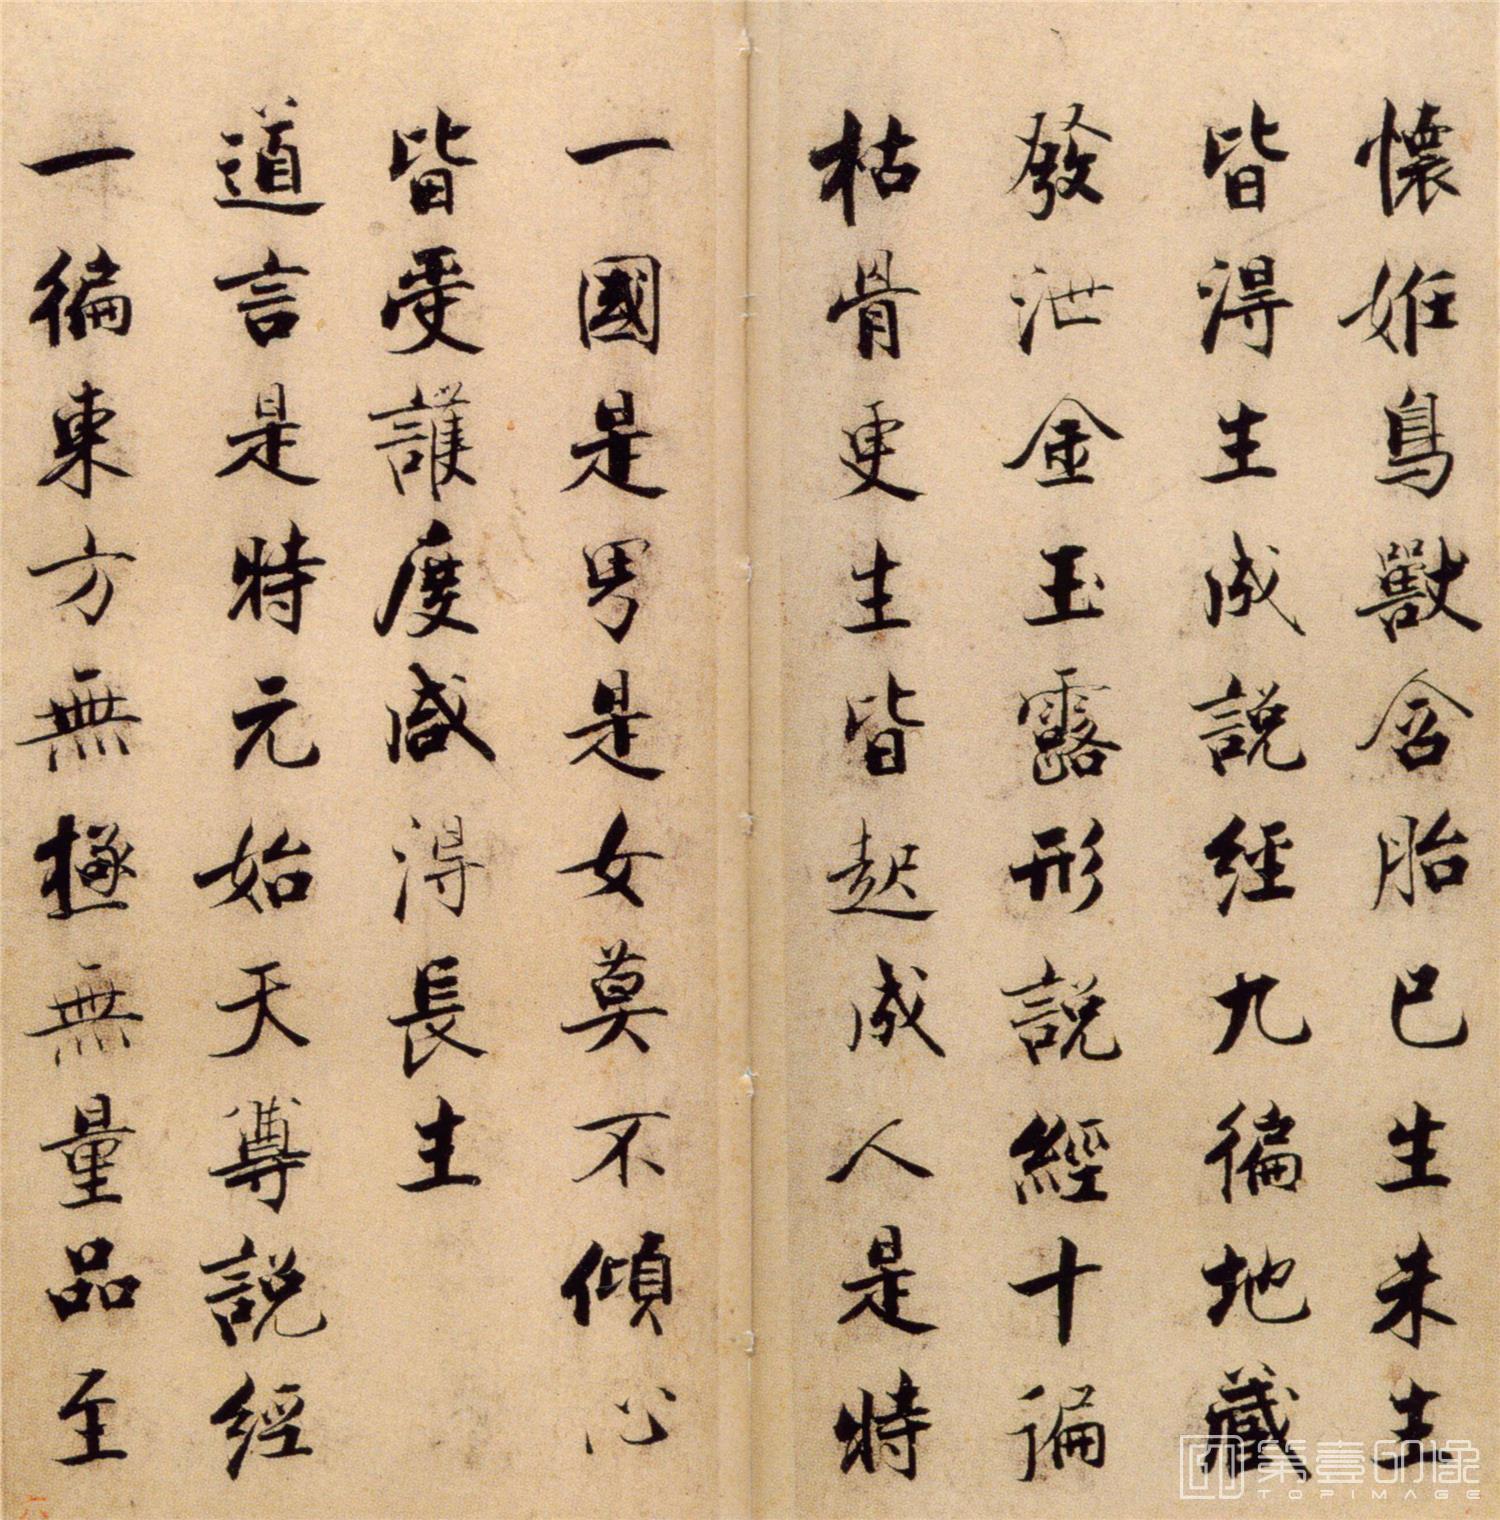 懷妊鳥獸含胎已生未生
皆得生成說經九徧地藏
發泄金玉露形說經十遍
枯骨更生皆起成人是時
一國是男是女莫不傾心
皆受護度咸得長生
道言是時元始天尊說經
一徧東方無極無量品至
六
第壹印像
TOPIMAGE